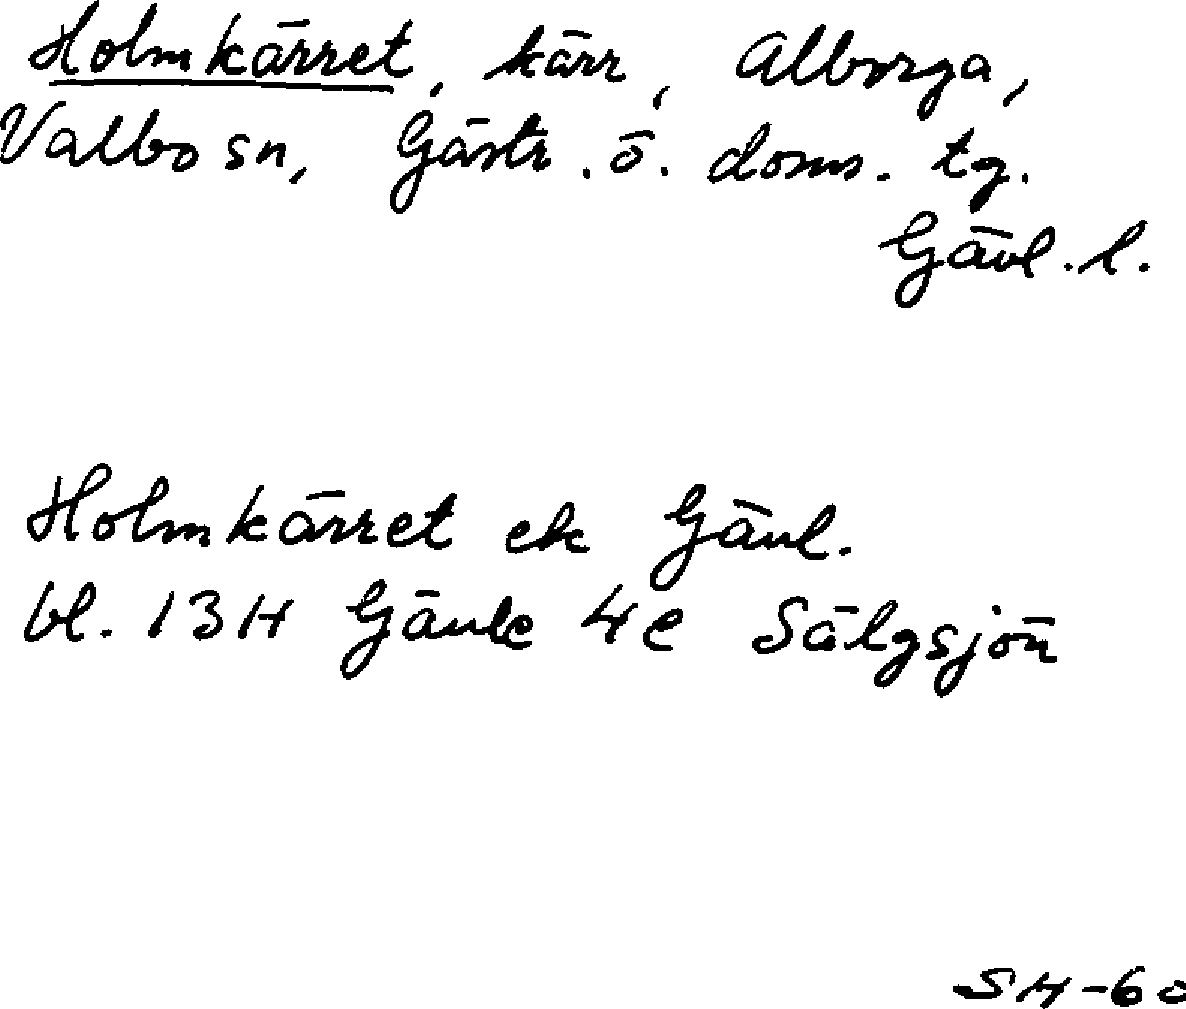 Holmkärret, kärr, Alborga,
Valbo sn, Gästr. ö. doms. tg.
Gävl. l.
Holmkärret ek Gävl.
bl. 13H Gävle 4e Sälgsjön
SH-60